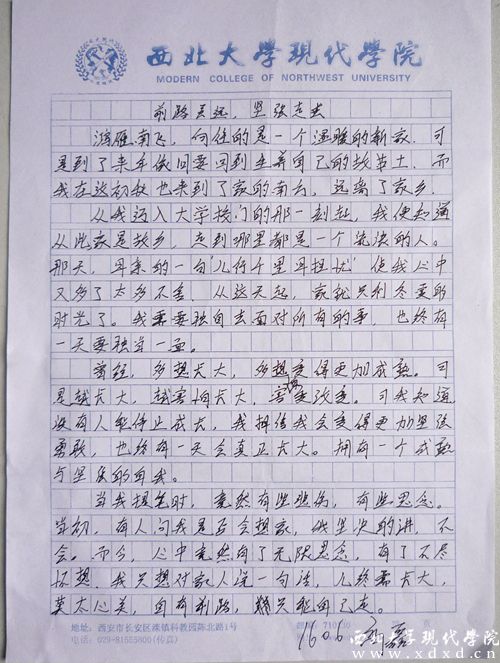 西北大学现代学院
MODERN COLLEGE OF NORTHWEST UNIVERSITY
前路灵远，坚强走去
鸿雁南飞，向往的是一个温暖的新家，可
是到了来年依旧要回到生养自己的故里土，而
我在这初秋也来到了家的南方，远离了家乡。
从我迈入大学校门的那一刻起，我便知道
从此家是故乡，走到哪里都是一个流浪的人。
那天，母亲的一句"儿行千里母担忧"使我心中
又多了太多不舍。从这天起，家就只剩冬夏的
时光了。我需要独自去面对所有的事，也终有
一天要独当一面。
曾经，多想长大，多想变得更加成熟。可
是越长大，越害怕长大，害怕改变。可我知道
没有人能停止成长，我相信我会变得更加坚强
勇敢，也终有一天会真正长大。拥有一个成熟
与坚强的自我。
当我提笔时，竟然有些悲伤，有些思念。
当初，有人问我是否会想家，我坚决的讲，不
会。而今，心中竟然有了无限思念，有了不尽
怀想。我只想对家人说一句话，儿终需长大，
莫太心关，自有前路，
地址：西安市长安区滦镇科教园陈北路1号
邮编：710130
电话：029-81555800(传真)
1606
西北大学现代学院
www.xdxd.cn